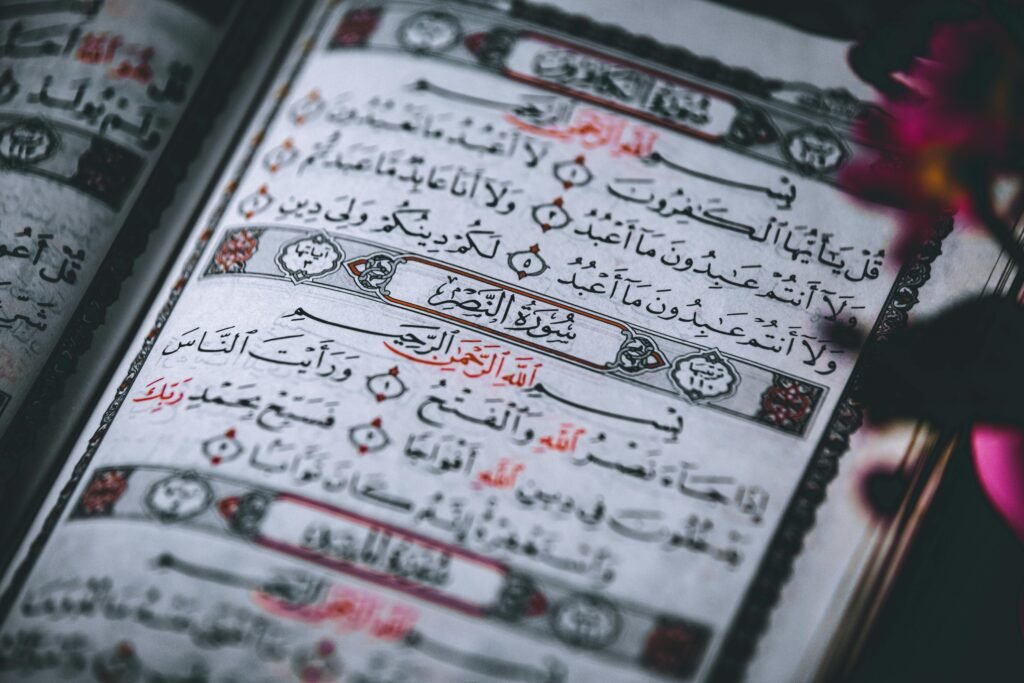 سُورَةُ الْكَافِرُونَ
بِسْمِ ٱللَّهِ ٱلرَّحْمَٰنِ ٱلرَّحِيمِ
قُلْ يَٰٓأَيُّهَا ٱلْكَٰفِرُونَ ١ لَآ أَعْبُدُ مَا تَعْبُدُونَ ٢
وَلَآ أَنتُمْ عَٰبِدُونَ مَآ أَعْبُدُ ٣ وَلَآ أَنَا۠ عَابِدٌ مَّا عَبَدتُّمْ ٤
وَلَآ أَنتُمْ عَٰبِدُونَ مَآ أَعْبُدُ ٥ لَكُمْ دِينُكُمْ وَلِىَ دِينِ ٦
ترتيبها ١١٠ سُورَةُ النَّصْرِ آياتها ٣
بِسْمِ ٱللَّهِ ٱلرَّحْمَٰنِ ٱلرَّحِيمِ
إِذَا جَآءَ نَصْرُ ٱللَّهِ وَٱلْفَتْحُ ١ وَرَأَيْتَ ٱلنَّاسَ
يَدْخُلُونَ فِى دِينِ ٱللَّهِ أَفْوَاجًا ٢ فَسَبِّحْ بِحَمْدِ رَبِّكَ
وَٱسْتَغْفِرْهُ إِنَّهُۥ كَانَ تَوَّابًۢا ٣
بِسْمِ ٱللَّهِ ٱلرَّحْمَٰنِ ٱلرَّحِيمِ
قُلْ هُوَ ٱللَّهُ
وَلَمْ يُولَدْ
قُلْ أَعُوذُ